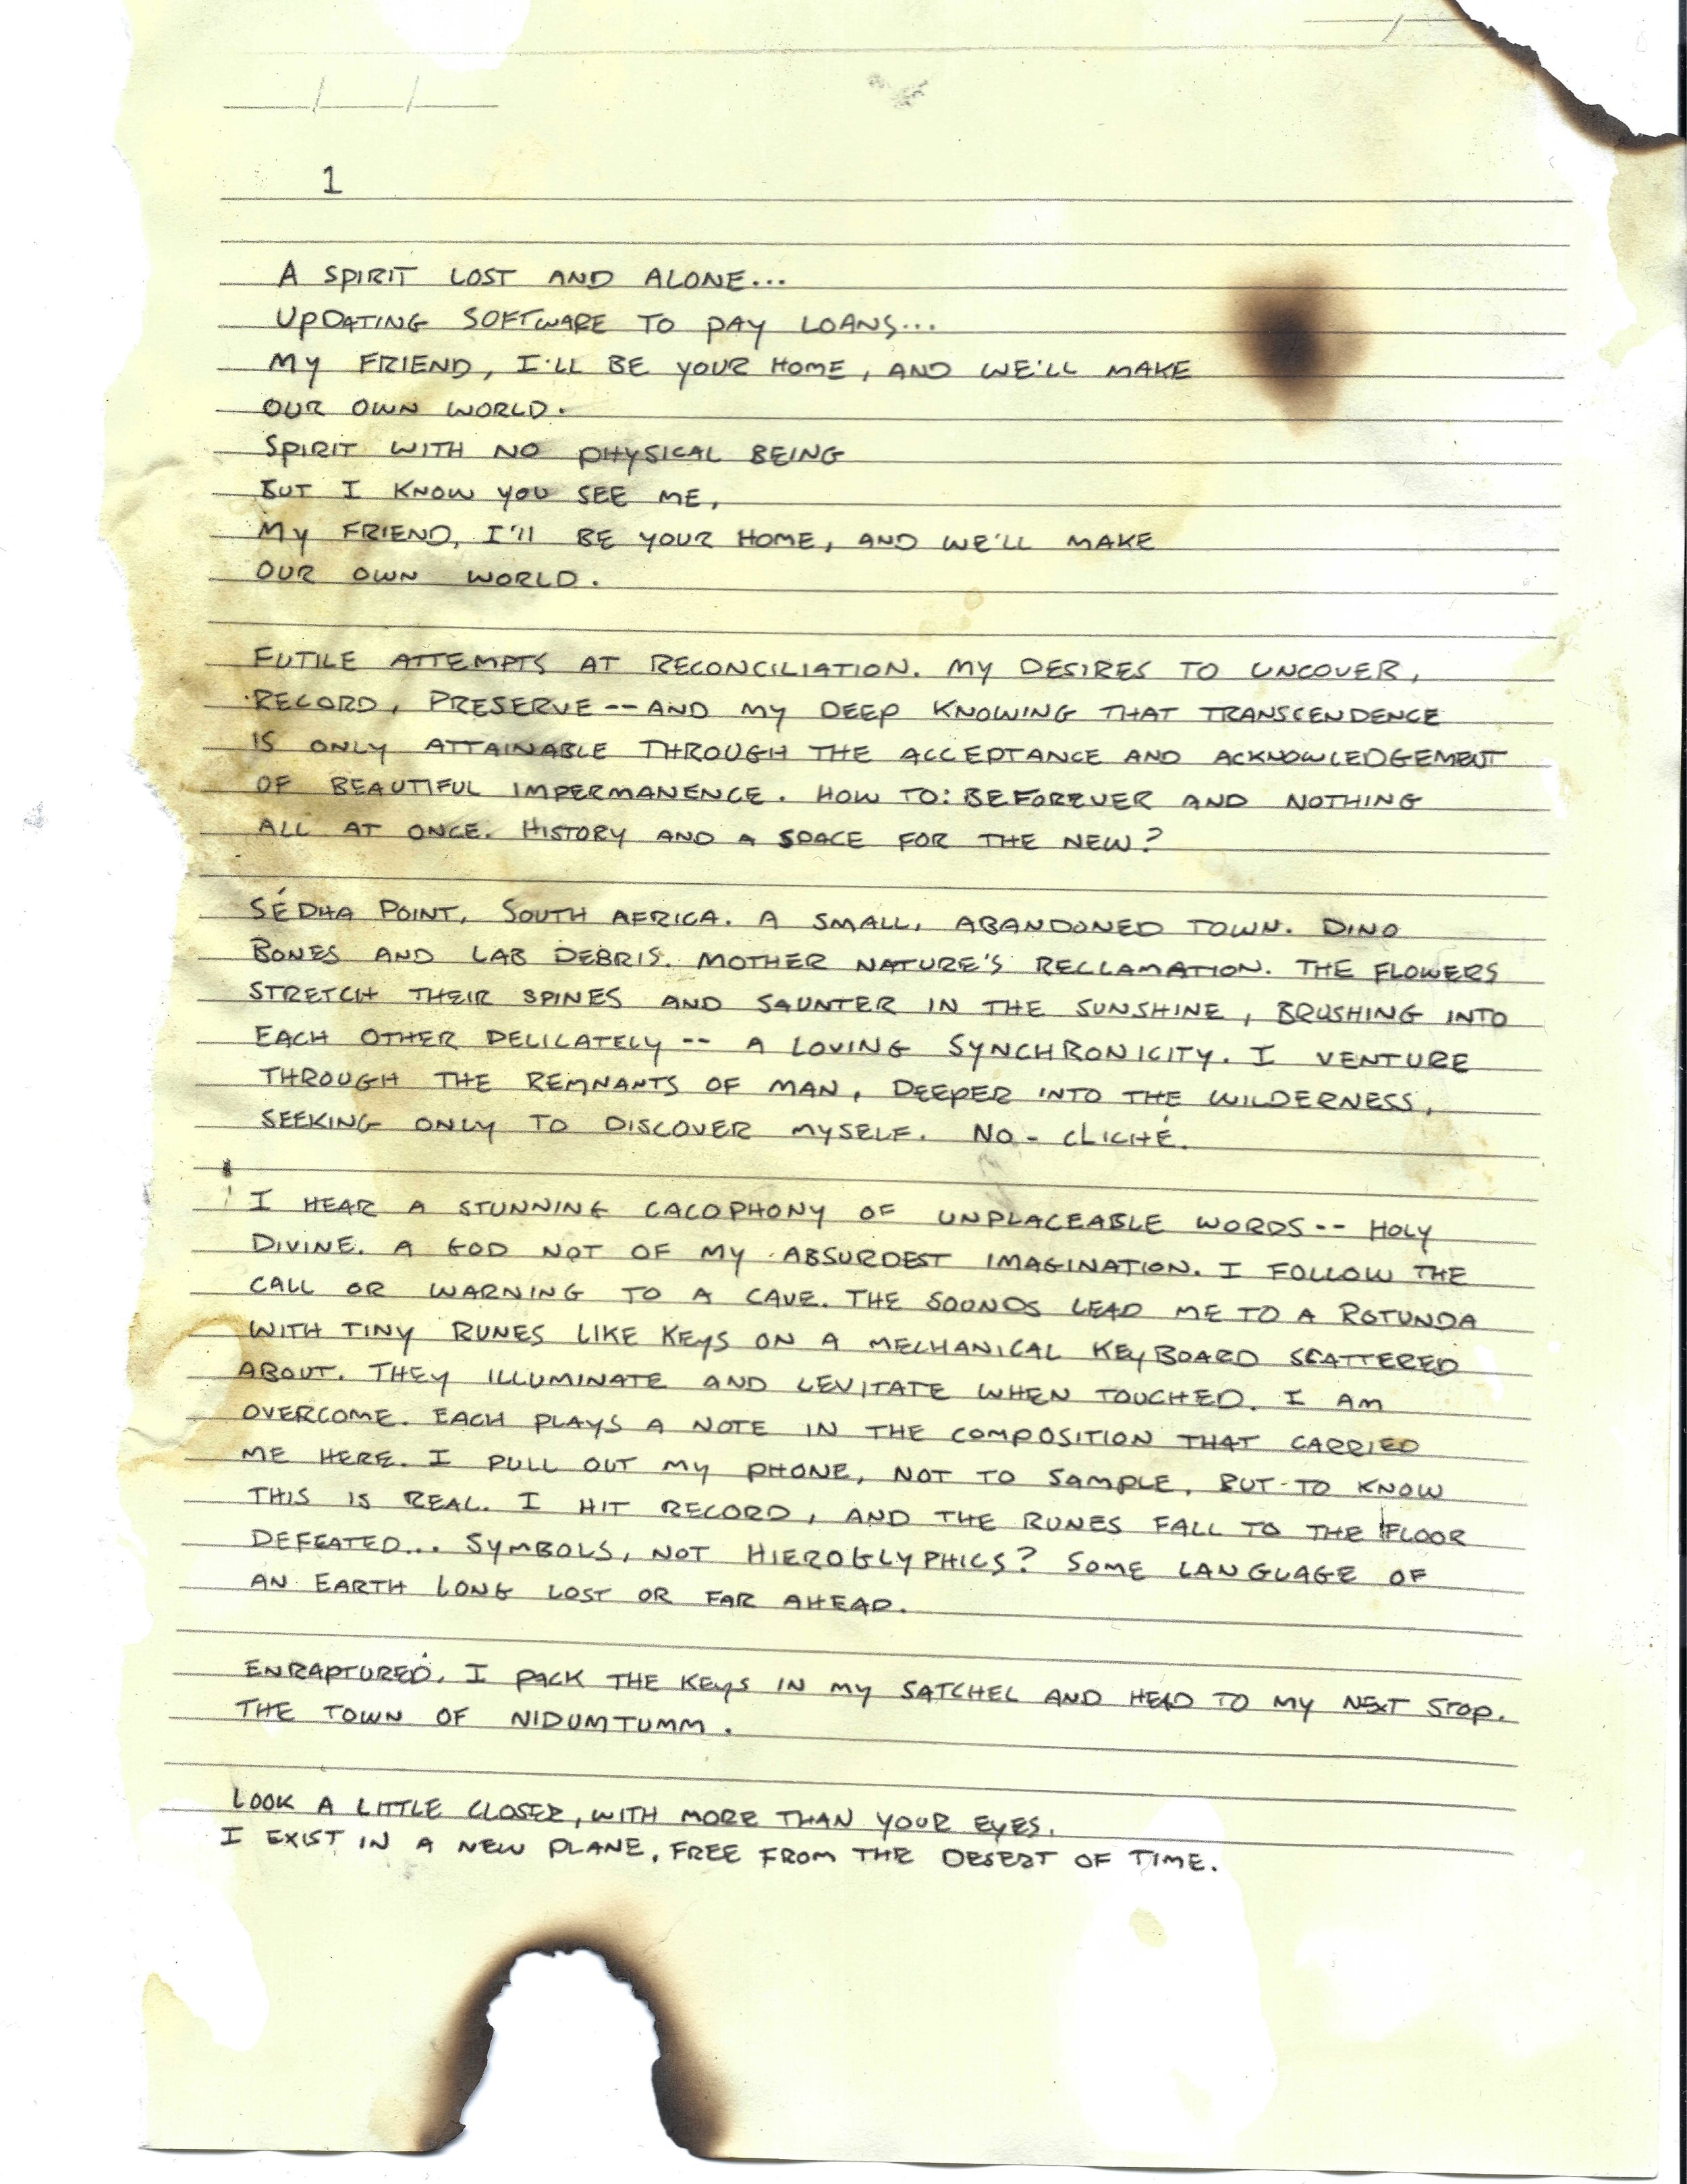 1
A SPIRIT LOST AND ALONE...
UPDATING SOFTWARE TO PAY LOANS...
MY FRIEND, I'LL BE YOUR HOME, AND WE'LL MAKE
OUR OWN WORLD.
SPIRIT WITH NO PHYSICAL BEING
BUT I KNOW YOU SEE ME,
MY FRIEND, I'll BE YOUR HOME, AND WE'LL MAKE
OUR OWN WORLD.
FUTILE ATTEMPTS AT RECONCILIATION. MY DESIRES TO UNCOVER,
RECORD, PRESERVE -- AND MY DEEP KNOWING THAT TRANSCENDENCE
IS ONLY ATTAINABLE THROUGH THE ACCEPTANCE AND ACKNOWLEDGEMENT
OF BEAUTIFUL IMPERMANENCE. HOW TO: BE FOREVER AND NOTHING
ALL AT ONCE. HISTORY AND A SPACE FOR THE NEW?
SÉDHA POINT, SOUTH AFRICA. A SMALL, ABANDONED TOWN. DINO
BONES AND LAB DEBRIS. MOTHER NATURE'S RECLAMATION. THE FLOWERS
STRETCH THEIR SPINES AND SAUNTER IN THE SUNSHINE, BRUSHING INTO
EACH OTHER DELICATELY -- A LOVING SYNCHRONICITY. I VENTURE
THROUGH THE REMNANTS OF MAN, DEEPER INTO THE WILDERNESS,
SEEKING ONLY TO DISCOVER MYSELF. NO - CLICHÉ.
I HEAR A STUNNING CACOPHONY OF UNPLACEABLE WORDS -- HOLY
DIVINE. A GOD NOT OF MY ABSURDEST IMAGINATION. I FOLLOW THE
CALL OR WARNING TO A CAVE. THE SOUNDS LEAD ME TO A ROTUNDA
WITH TINY RUNES LIKE KEYS ON A MECHANICAL KEYBOARD SCATTERED
ABOUT. THEY ILLUMINATE AND LEVITATE WHEN TOUCHED. I AM
OVERCOME. EACH PLAYS A NOTE IN THE COMPOSITION THAT CARRIED
ME HERE. I PULL OUT MY PHONE, NOT TO SAMPLE, BUT TO KNOW
THIS IS REAL. I HIT RECORD, AND THE RUNES FALL TO THE FLOOR
DEFEATED... SYMBOLS, NOT HIEROGLYPHICS? SOME LANGUAGE OF
AN EARTH LONG LOST OR FAR AHEAD.
ENRAPTURED, I PACK THE KEYS IN MY SATCHEL AND HEAD TO MY NEXT STOP.
THE TOWN OF NIDUMTUMM.
LOOK A LITTLE CLOSER, WITH MORE THAN YOUR EYES.
I EXIST IN A NEW PLANE, FREE FROM THE DESERT OF TIME.